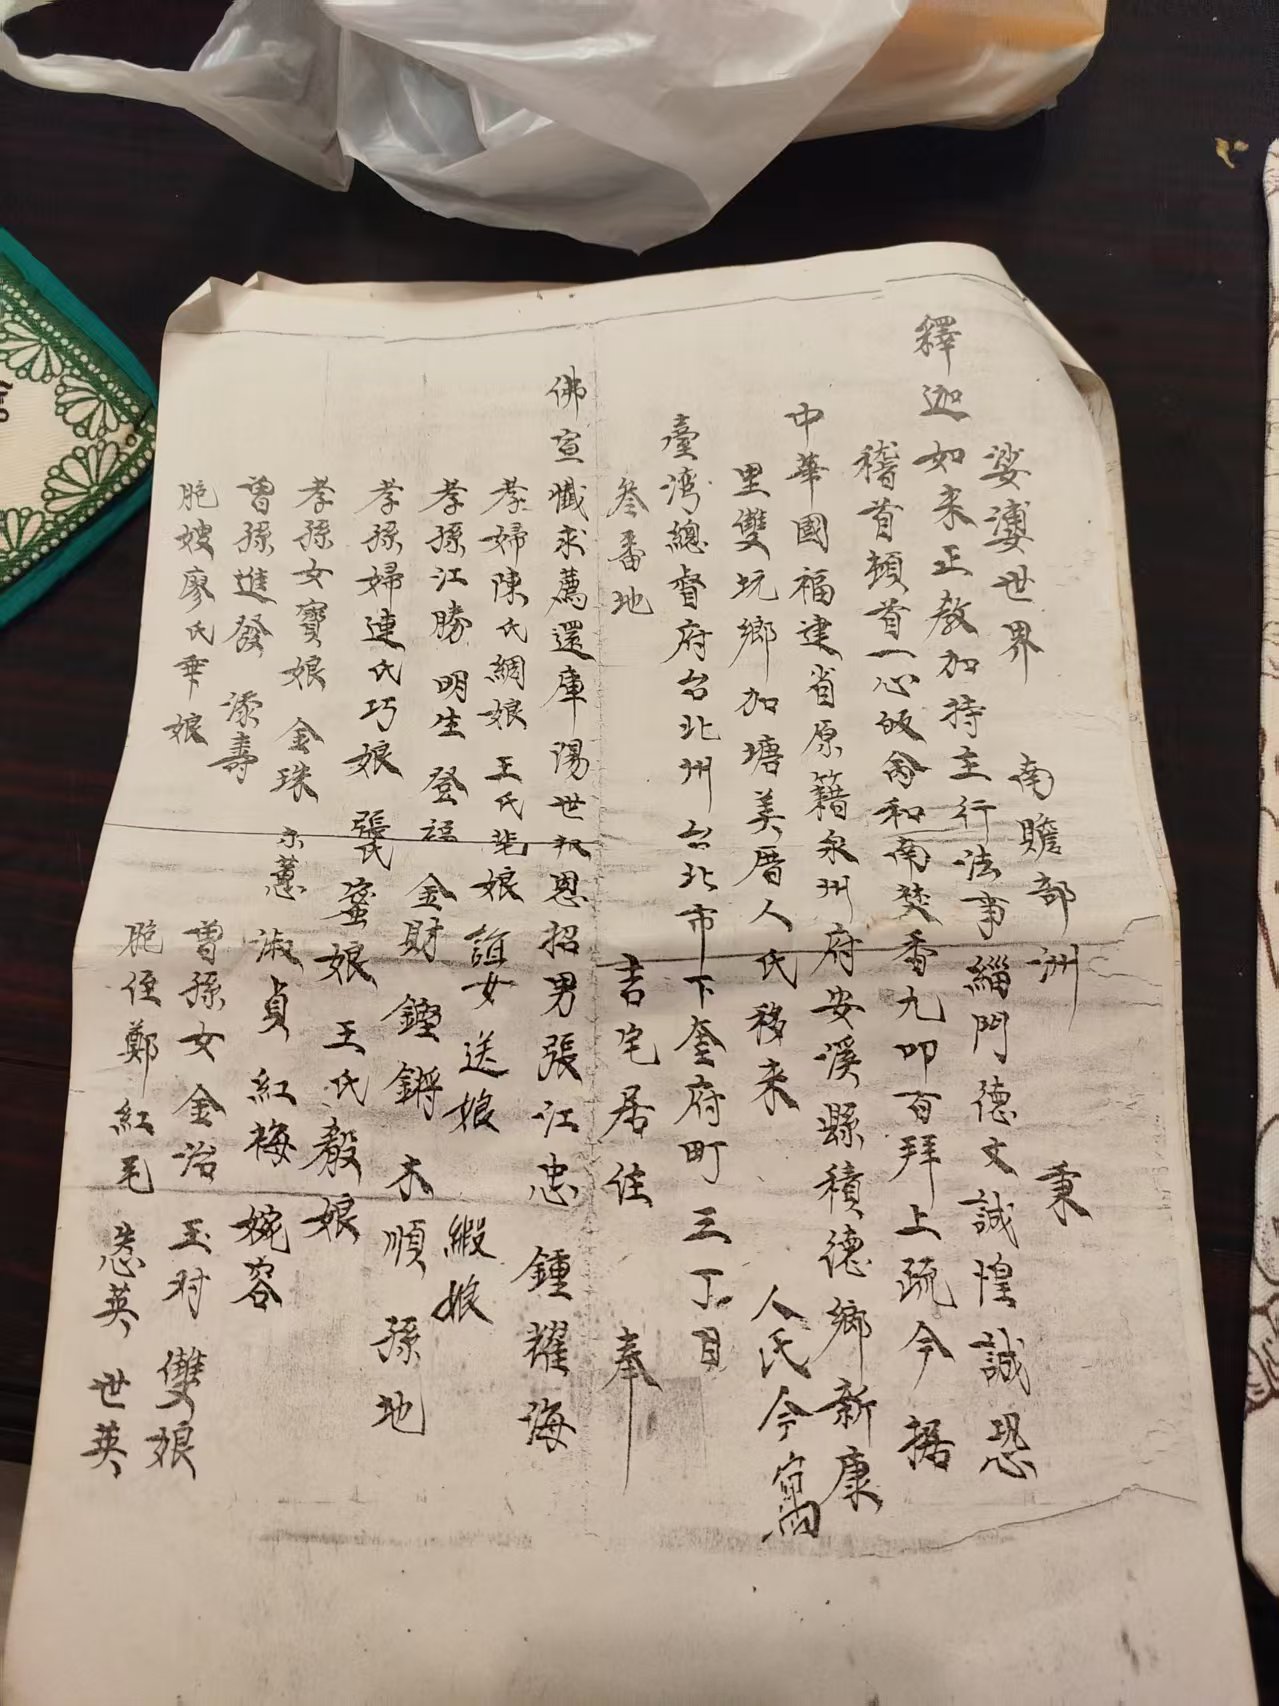 娑婆世界 南贍部洲 秉
釋迦如来正教加持主行法事緇門德文誠惶誠恐
稽首頓首一心皈命和南焚香九叩百拜上疏今據
中華國福建省原籍泉州府安溪縣積德鄉新康
里雙坑鄉加塘美厝人氏移来 人氏今寓
臺湾總督府台北州台北市下奎府町三丁目
叁番地 吉宅居住 奉
佛宣懺求薦還庫陽世报恩招男張江忠 鍾耀海
孝婦陳氏綢娘 王氏 娘 誼女送娘 緞娘
孝孫江勝 明生 登福 金財 鏗鏘 木順 孫地
孝孫婦連氏巧娘 張氏蜜娘 王氏穀娘
孝孫女寶娘 金珠 示蕙 淑貞 紅梅 婉容
曾孫進發 添壽 曾孫女金治 玉对 雙娘
胞嫂廖氏 娘 胞侄鄭紅毛 英 世英